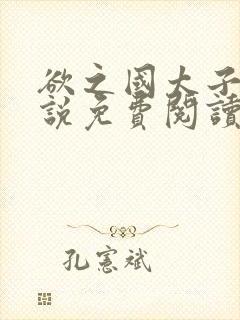 欲之國大子
說免費閱讀
孔憲斌